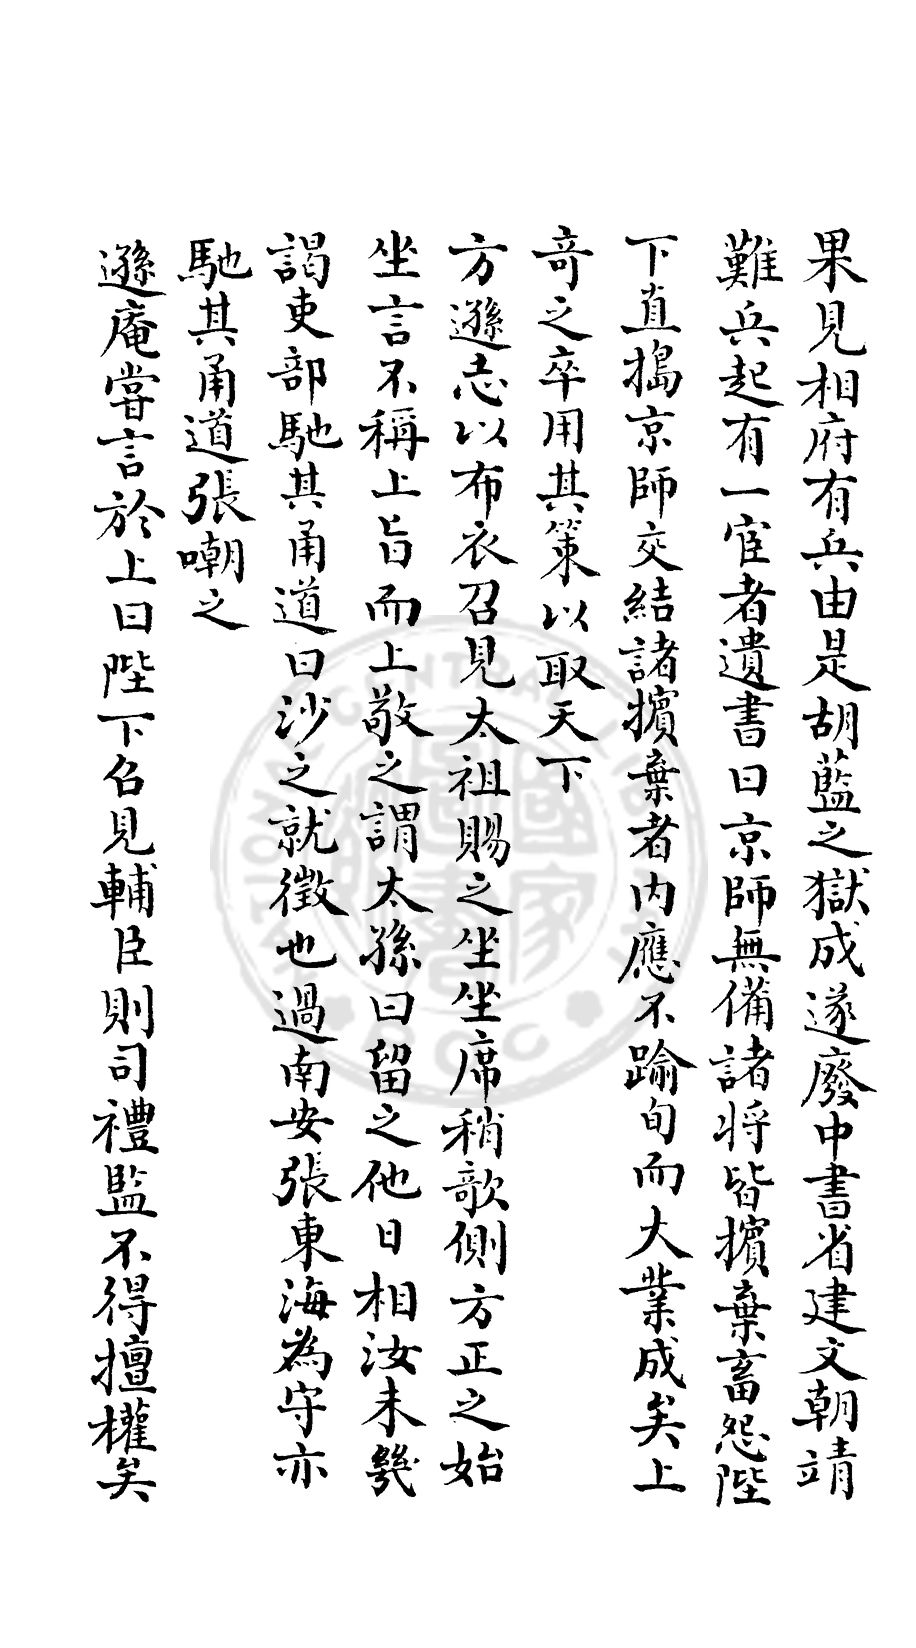 果見相府有兵由是胡藍之獄成遂廢中書省建文朝靖
難兵起有一宦者遺書曰京師無備諸将皆擯棄畜怨陛
下直搗京師交結諸擯棄者内應不踰旬而大業成矣上
奇之卒用其策以取天下
方遜志以布衣召見太祖賜之坐坐席稍欹側方正之始
坐言不稱上旨而上敬之謂太孫曰留之他日相汝未幾
謁吏部馳其甬道曰沙之就徵也過南安張東海為守亦
馳其甬道張嘲之
遜庵嘗言於上曰陛下召見輔臣則司禮監不得擅權矣